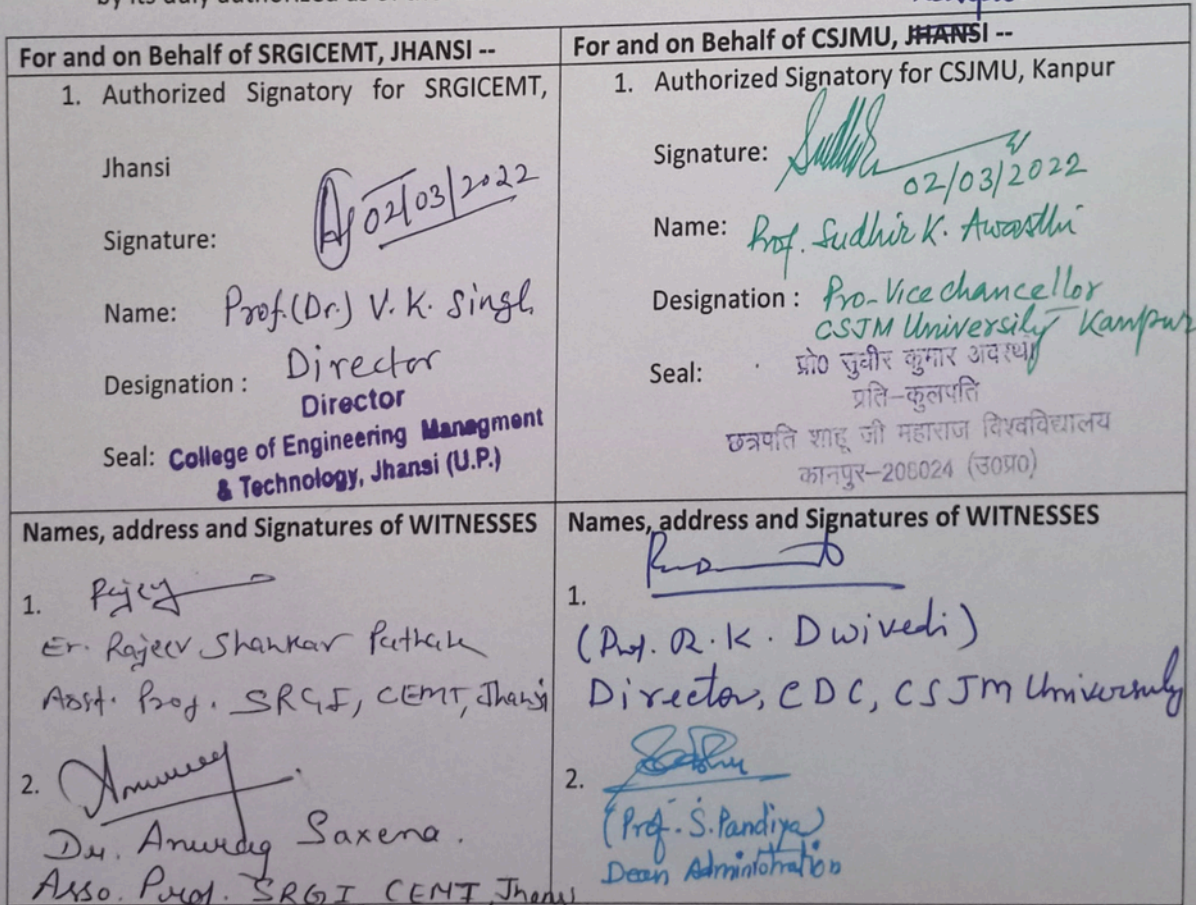 by its duly authorized as of the
For and on Behalf of SRGICEMT, JHANSI --
1. Authorized Signatory for SRGICEMT,
Jhansi
Signature:
02/03/2022
Name: Prof.(Dr.) V. K. Singh
Designation : Director
Director
Seal: College of Engineering Managment
& Technology, Jhansi (U.P.)
For and on Behalf of CSJMU, JHANSI --
1. Authorized Signatory for CSJMU, Kanpur
Signature:
02/03/2022
Name: Prof. Sudhir K. Awasthi
Designation : Pro-Vice chancellor
CSJM University Kanpur
Seal: प्रो0 सुधीर कुमार अवस्थी
प्रति-कुलपति
छत्रपति शाहू जी महाराज विश्वविद्यालय
कानपुर-208024 (उ0प्र0)
Names, address and Signatures of WITNESSES
1. Rajeev
Er. Rajeev Shankar Pathak
Asst. Prof. SRGI, CEMT, Jhansi
2. Anurag
Dr. Anurag Saxena.
Asso. Prof. SRGI CEMT Jhansi
Names, address and Signatures of WITNESSES
1.
(Prof. R. K. Dwivedi)
Director, CDC, CSJM University
2.
(Prof. S. Pandiya)
Dean Administration